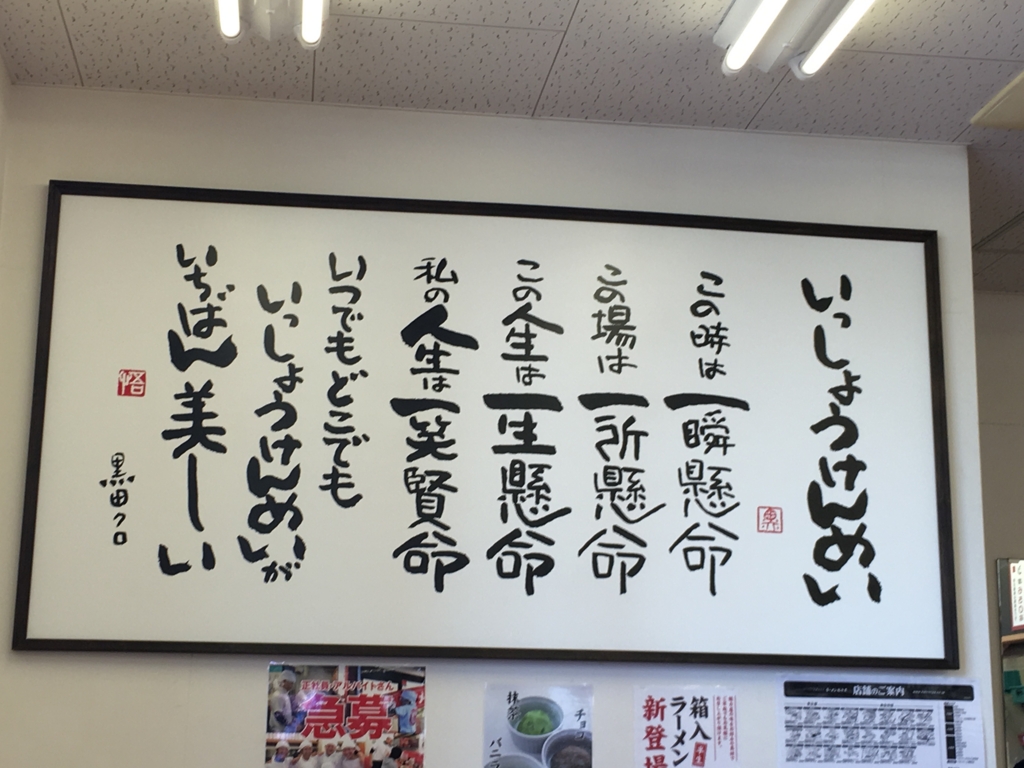 いっしょうけんめい
この時は一瞬懸命
この場は一所懸命
この人生は一生懸命
私の人生は一笑賢命
いつでもどこでも
いっしょうけんめいが
いちばん美しい
悟
黒田クロ
正社員・アルバイトさん
急募
抹茶
チョコ
バニ
箱入
ラーメン
新登場
店舗のご案内